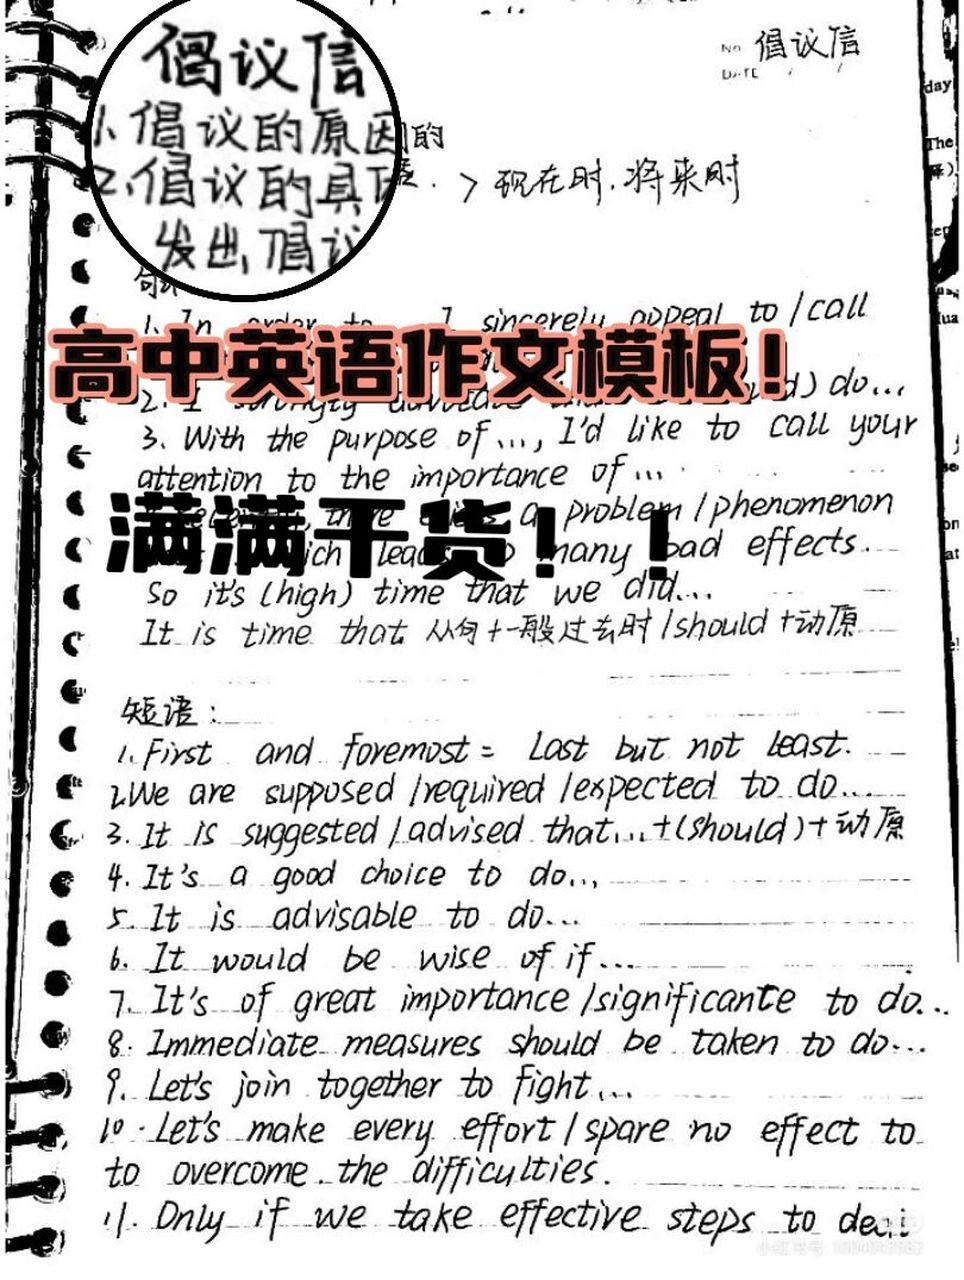 倡议信
No 倡议信
DATE
1.倡议的原因
的
2.倡议的具
> 现在时.将来时
发出倡议
day
The
1. In order to ... I sincerely appeal to / call
高中英语作文模板!
2. I strongly do...
3. With the purpose of ..., I'd like to call your
attention to the importance of ...
满满干货!!
a problem / phenomenon
which leads to many bad effects.
So it's (high) time that we did...
It is time that 从句+一般过去时/should+动原
短语:
1.First and foremost = Last but not least.
2.We are supposed /required /expected to do...
3. It is suggested / advised that...+(should)+动原
4. It's a good choice to do...
5. It is advisable to do...
6. It would be wise of if...
7. It's of great importance /significante to do...
8. Immediate measures should be taken to do...
9. Let's join together to fight...
10. Let's make every effort / spare no effect to
to overcome the difficulties.
11. Only if we take effective steps to deal